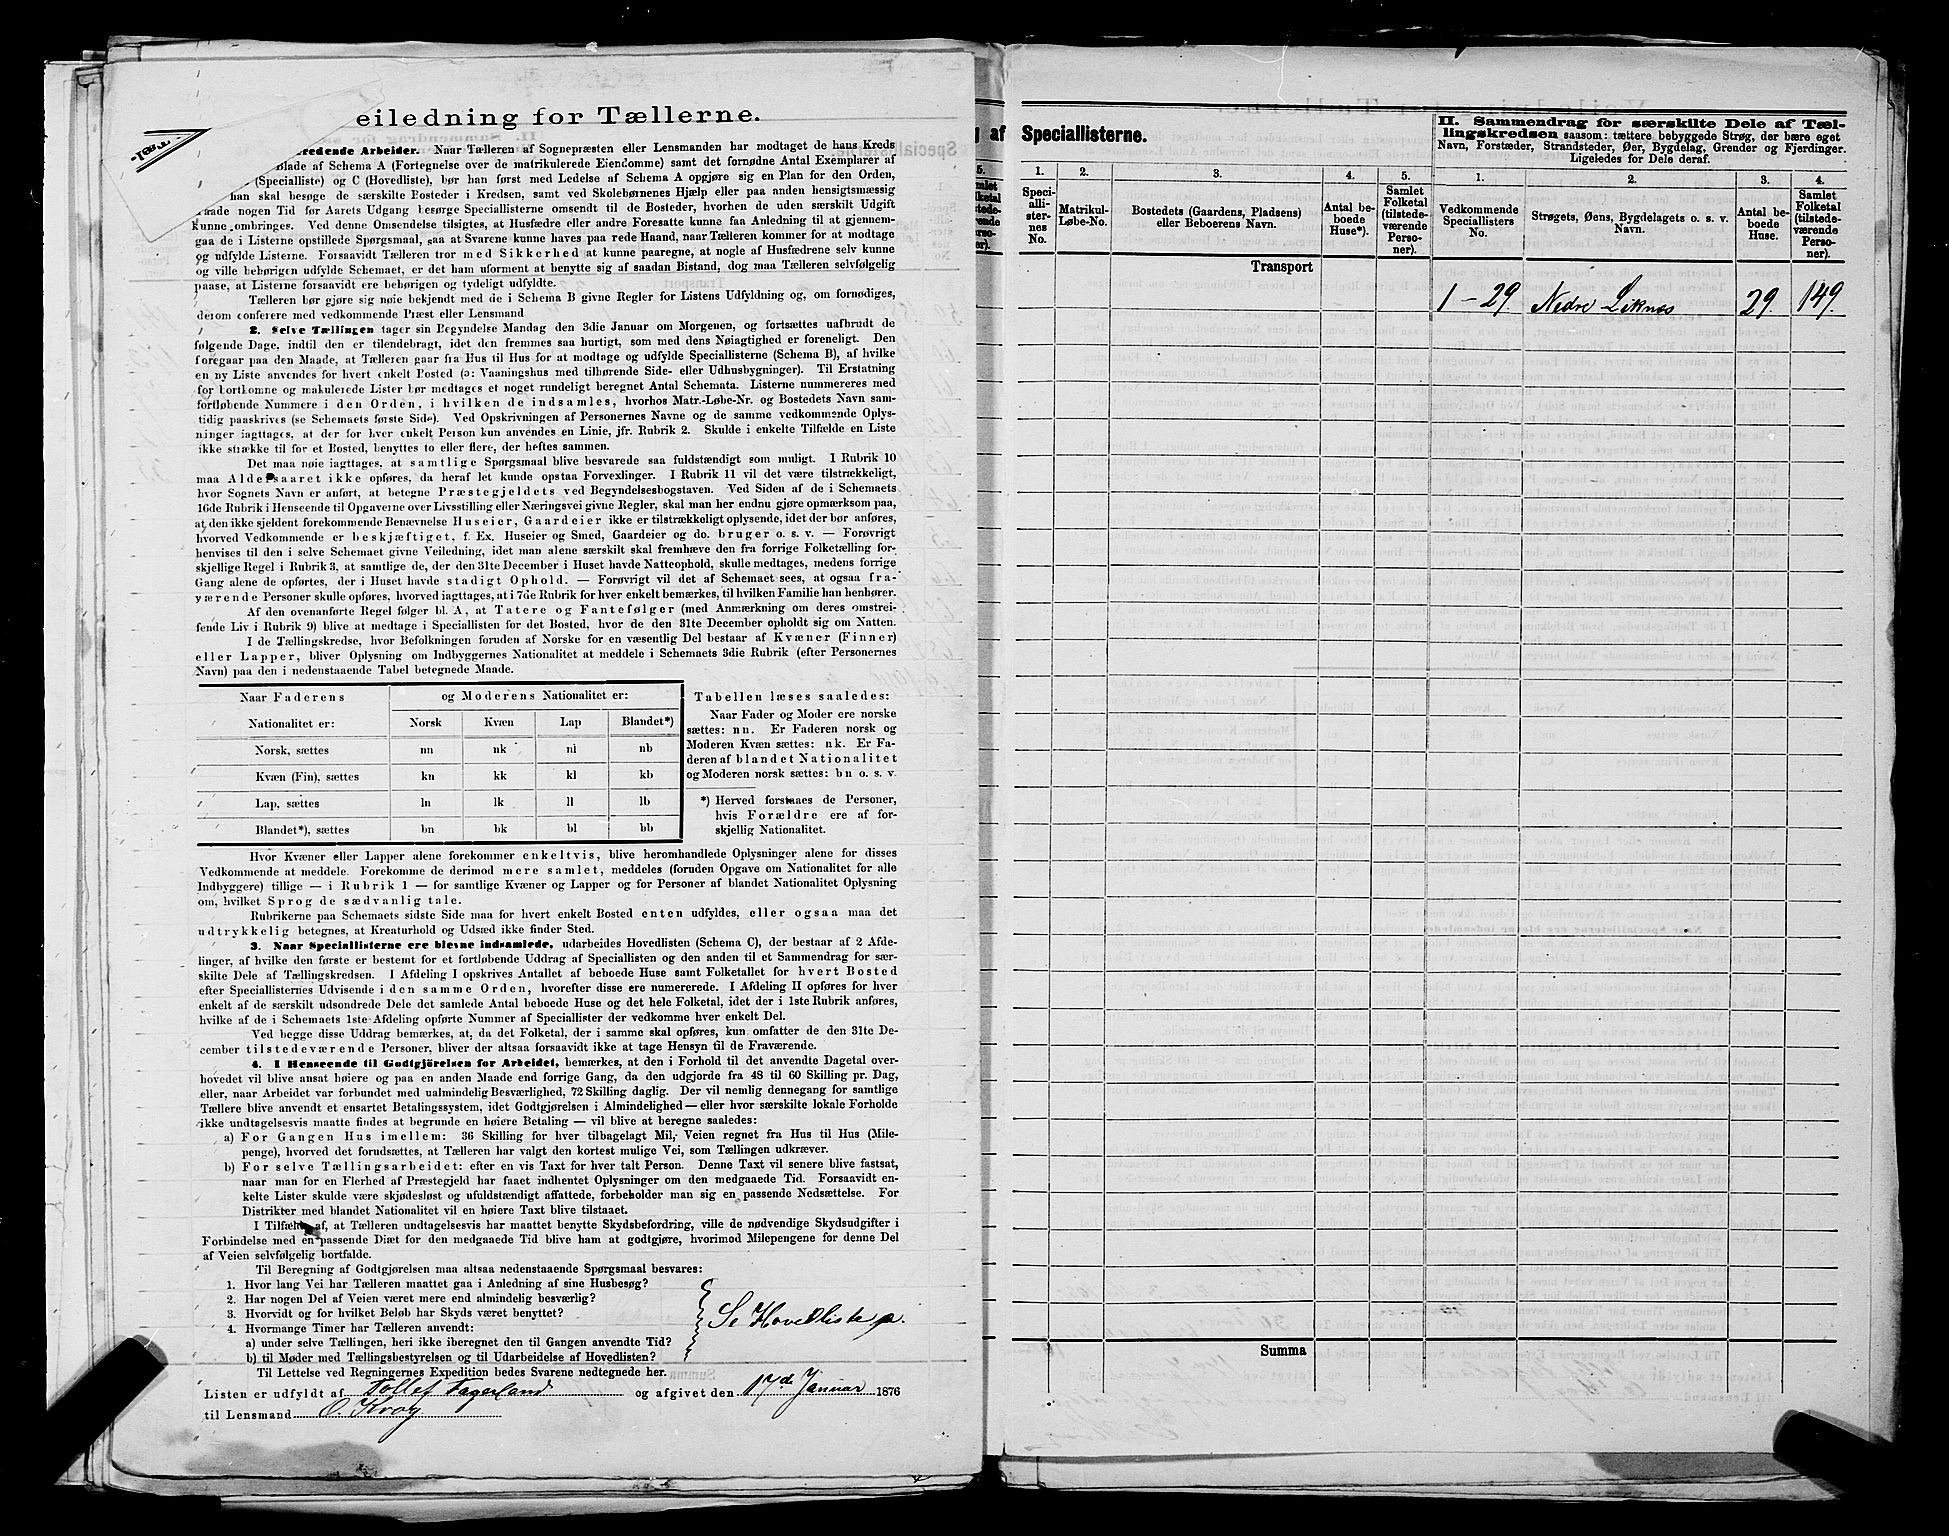 eiledning for Tællerne.
redende Arbeider. Naar Tælleren af Sognepræsten eller Lensmanden har modtaget de hans Kreds
Blade af Schema A (Fortegnelse over de matrikulerede Eiendomme) samt det fornødne Antal Exemplarer af
(Specialliste) og C (Hovedliste), bør han først med Ledelse af Schema A opgjøre sig en Plan for den Orden,
han skal besøge de særskilte Bosteder i Kredsen, samt ved Skolebørnenes Hjælp eller paa anden hensigtsmæssig
aade nogen Tid før Aarets Udgang besørge Speciallisterne omsendt til de Bosteder, hvorhen de uden særskilt Udgift
kunne ombringes. Ved denne Omsendelse tilsigtes, at Husfædre eller andre Foresatte kunne faa Anledning til at gjennem-
gaa de i Listerne opstillede Spørgsmaal, saa at Svarene kunne haves paa rede Haand, naar Tælleren kommer for at modtage
og udfylde Listerne. Forsaavidt Tælleren tror med Sikkerhed at kunne paaregne, at nogle af Husfædrene selv kunne
og ville behørigen udfylde Schemaet, er det ham uforment at benytte sig af saadan Bistand, dog maa Tælleren selvfølgelig
paase, at Listerne forsaavidt ere behørigen og tydeligt udfyldte.
Tælleren bør gjøre sig nøie bekjendt med de i Schema B givne Regler for Listens Udfyldning og, om fornødiges,
derom conferere med vedkommende Præst eller Lensmand
2. Selve Tællingen tager sin Begyndelse Mandag den 3die Januar om Morgenen, og fortsættes uafbrudt de
følgende Dage, indtil den er tilendebragt, idet den fremmes saa hurtigt, som med dens Nøiagtighed er foreneligt. Den
foregaar paa den Maade, at Tælleren gaar fra Hus til Hus for at modtage og udfylde Speciallisterne (Schema B), af hvilke
en ny Liste anvendes for hvert enkelt Bosted (ɔ: Vaaningshus med tilhørende Side- eller Udhusbygninger). Til Erstatning
for bortkomne og makulerede Lister bør medtages et noget rundeligt beregnet Antal Schemata. Listerne nummereres med
fortløbende Nummere i den Orden, i hvilken de indsamles, hvorhos Matr.-Løbe-Nr. og Bostedets Navn sam-
tidig paaskrives (se Schemaets første Side). Ved Opskrivningen af Personernes Navne og de samme vedkommende Oplys-
ninger iagttages, at der for hver enkelt Person kun anvendes en Linie, jfr. Rubrik 2. Skulde i enkelte Tilfælde en Liste
ikke strække til for et Bosted, benyttes to eller flere, der heftes sammen.
Det maa nøie iagttages, at samtlige Spørgsmaal blive besvarede saa fuldstændigt som muligt. I Rubrik 10
maa Aldersaaret ikke opføres, da heraf let kunde opstaa Forvexlinger. I Rubrik 11 vil det være tilstrækkeligt,
hvor Sognets Navn er anført, at betegne Præstegjeldets ved Begyndelsesbogstaven. Ved Siden af de i Schemaets
16de Rubrik i Henseende til Opgaverne over Livsstilling eller Næringsvei givne Regler, skal man her endnu gjøre opmærksom paa,
at den ikke sjeldent forekommende Benævnelse Huseier, Gaardeier ikke er tilstrækkeligt oplysende, idet der bør anføres,
hvorved Vedkommende er beskjæftiget, f. Ex. Huseier og Smed, Gaardeier og do. bruger o. s. v. — Forøvrigt
henvises til den i selve Schemaet givne Veiledning, idet man alene særskilt skal fremhæve den fra forrige Folketælling for-
skjellige Regel i Rubrik 3, at samtlige de, der den 31te December i Huset havde Natteophold, skulle medtages, medens forrige
Gang alene de opførtes, der i Huset havde stadigt Ophold. — Forøvrigt vil det af Schemaet sees, at ogsaa fra-
værende Personer skulle opføres, hvorved iagttages, at i 7de Rubrik for hver enkelt bemærkes, til hvilken Familie han henhører.
Af den ovenanførte Regel følger bl. A, at Tatere og Fantefølger (med Anmærkning om deres omstrei-
fende Liv i Rubrik 9) blive at medtage i Speciallisten for det Bosted, hvor de den 31te December opholdt sig om Natten.
I de Tællingskredse, hvor Befolkningen foruden af Norske for en væsentlig Del bestaar af Kvæner (Finner)
eller Lapper, bliver Oplysning om Indbyggernes Nationalitet at meddele i Schemaets 3die Rubrik (efter Personernes
Navn) paa den i nedenstaaende Tabel betegnede Maade.
Naar Faderens og Moderens Nationalitet er:
Nationalitet er: Norsk Kvæn Lap Blandet*)
Norsk, sættes nn nk nl nb
Kvæn (Fin), sættes kn kk kl kb
Lap, sættes ln lk ll lb
Blandet*), sættes bn bk bl bb
Tabellen læses saaledes:
Naar Fader og Moder ere norske
sættes: nn. Er Faderen norsk og
Moderen Kvæn sættes: nk. Er Fa-
deren af blandet Nationalitet
og Moderen norsk sættes: bn o. s. v.
*) Herved forstaaes de Personer,
hvis Forældre ere af for-
skjellig Nationalitet.
Hvor Kvæner eller Lapper alene forekommer enkeltvis, blive heromhandlede Oplysninger alene for disses
Vedkommende at meddele. Forekomme de derimod mere samlet, meddeles (foruden Opgave om Nationalitet for alle
Indbyggere) tillige — i Rubrik 1 — for samtlige Kvæner og Lapper og for Personer af blandet Nationalitet Oplysning
om, hvilket Sprog de sædvanlig tale.
Rubrikerne paa Schemaets sidste Side maa for hvert enkelt Bosted enten udfyldes, eller ogsaa maa det
udtrykkelig betegnes, at Kreaturhold og Udsæd ikke finder Sted.
3. Naar Speciallisterne ere blevne indsamlede, udarbeides Hovedlisten (Schema C), der bestaar af 2 Afde-
linger, af hvilke den første er bestemt for et fortløbende Uddrag af Speciallisten og den anden til et Sammendrag for sær-
skilte Dele af Tællingskredsen. I Afdeling I opskrives Antallet af beboede Huse samt Folketallet for hvert Bosted
efter Speciallisternes Udvisende i den samme Orden, hvorefter disse ere numererede. I Afdeling II opføres for hver
enkelt af de særskilt udsondrede Dele det samlede Antal beboede Huse og det hele Folketal, idet der i 1ste Rubrik anføres,
hvilke af de i Schemaets 1ste Afdeling opførte Nummer af Speciallister der vedkomme hver enkelt Del.
Ved begge disse Uddrag bemærkes, at, da det Folketal, der i samme skal opføres, kun omfatter de den 31te De-
cember tilstedeværende Personer, bliver der altsaa forsaavidt ikke at tage Hensyn til de Fraværende.
4. I Henseende til Godtgjörelsen for Arbeidet, bemærkes, at den i Forhold til det anvendte Dagetal over-
hovedet vil blive ansat høiere og paa en anden Maade end forrige Gang, da den udgjorde fra 48 til 60 Skilling pr. Dag,
eller, naar Arbeidet var forbundet med ualmindelig Besværlighed, 72 Skilling daglig. Der vil nemlig dennegang for samtlige
Tællere blive anvendt et ensartet Betalingssystem, idet Godtgjørelsen i Almindelighed — eller hvor særskilte lokale Forholde
ikke undtagelsesvis maatte findes at begrunde en høiere Betaling — vil blive at beregne saaledes:
a) For Gangen Hus imellem: 36 Skilling for hver tilbagelagt Mil, Veien regnet fra Hus til Hus (Mile-
penge), hvorved det forudsættes, at Tælleren har valgt den kortest mulige Vei, som Tællingen udkræver.
b) For selve Tællingsarbeidet: efter en vis Taxt for hver talt Person. Denne Taxt vil senere blive fastsat,
naar man for en Flerhed af Præstegjeld har faaet indhentet Oplysninger om den medgaaede Tid. Forsaavidt en-
kelte Lister skulde være skjødesløst og ufuldstændigt affattede, forbeholder man sig en passende Nedsættelse. For
Distrikter med blandet Nationalitet vil en høiere Taxt blive tilstaaet.
I Tilfælde af, at Tælleren undtagelsesvis har maattet benytte Skydsbefordring, ville de nødvendige Skydsudgifter i
Forbindelse med en passende Diæt for den medgaaede Tid blive ham at godtgjøre, hvorimod Milepengene for denne Del
af Veien selvfølgelig bortfalde.
Til Beregning af Godtgjørelsen maa altsaa nedenstaaende Spørgsmaal besvares:
1. Hvor lang Vei har Tælleren maattet gaa i Anledning af sine Husbesøg?
2. Har nogen Del af Veien været mere end almindelig besværlig?
3. Hvorvidt og for hvilket Beløb har Skyds været benyttet?
4. Hvormange Timer har Tælleren anvendt:
a) under selve Tællingen, heri ikke iberegnet den til Gangen anvendte Tid?
b) til Møder med Tællingsbestyrelsen og til Udarbeidelse af Hovedlisten?
Se Hovedliste
Til Lettelse ved Regningernes Expedition bedes Svarene nedtegnede her.
Listen er udfyldt af Tollef Fagerland og afgivet den 17de Januar 1876
til Lensmand O. Krog
g af Speciallisterne.
II. Sammendrag for særskilte Dele af Tæl-
lingskredsen saasom: tættere bebyggede Strøg, der bære eget
Navn, Forstæder, Strandsteder, Øer, Bygdelag, Grender og Fjerdinger.
Ligeledes for Dele deraf.
1. 2. 3. 4. 5. 1. 2. 3. 4.
Speci-
allis-
ternes
No.
Matrikul-
Løbe-No.
Bostedets (Gaardens, Pladsens)
eller Beboerens Navn.
Antal be-
boede
Huse*).
Samlet
Folketal
(tilstede-
værende
Perso-
ner).
Vedkommende
Speciallisters
No.
Strøgets, Øens, Bygdelagets o. s. v.
Navn.
Antal be-
boede
Huse.
Samlet
Folketal
(tilstede-
værende
Perso-
ner).
Transport
1-29. Nedre Liknes 29. 149.
Summa